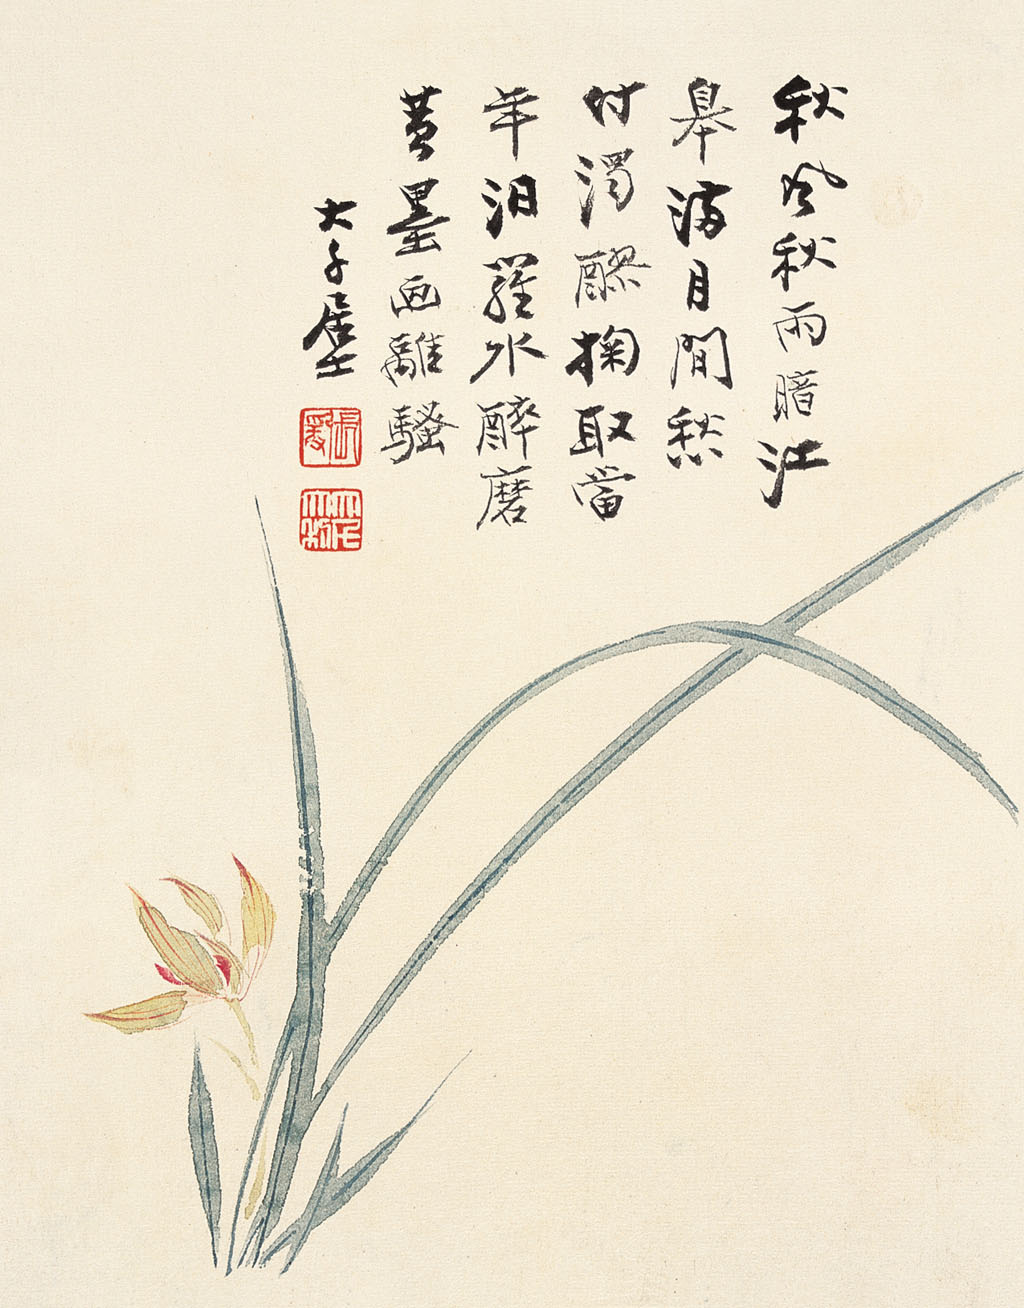 秋風秋雨暗江
皋滿目閒愁
付濁醪掬取當
年汨羅水醉磨
黃墨画離騷
大千居士
張爰